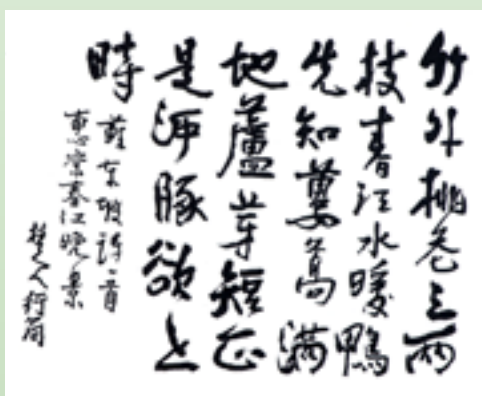 竹外桃花三兩
枝春江水暖鴨
先知蔞蒿滿
地蘆芽短正
是河豚欲上
時
蘇東坡詩一首
惠崇春江晚景
楚人行简